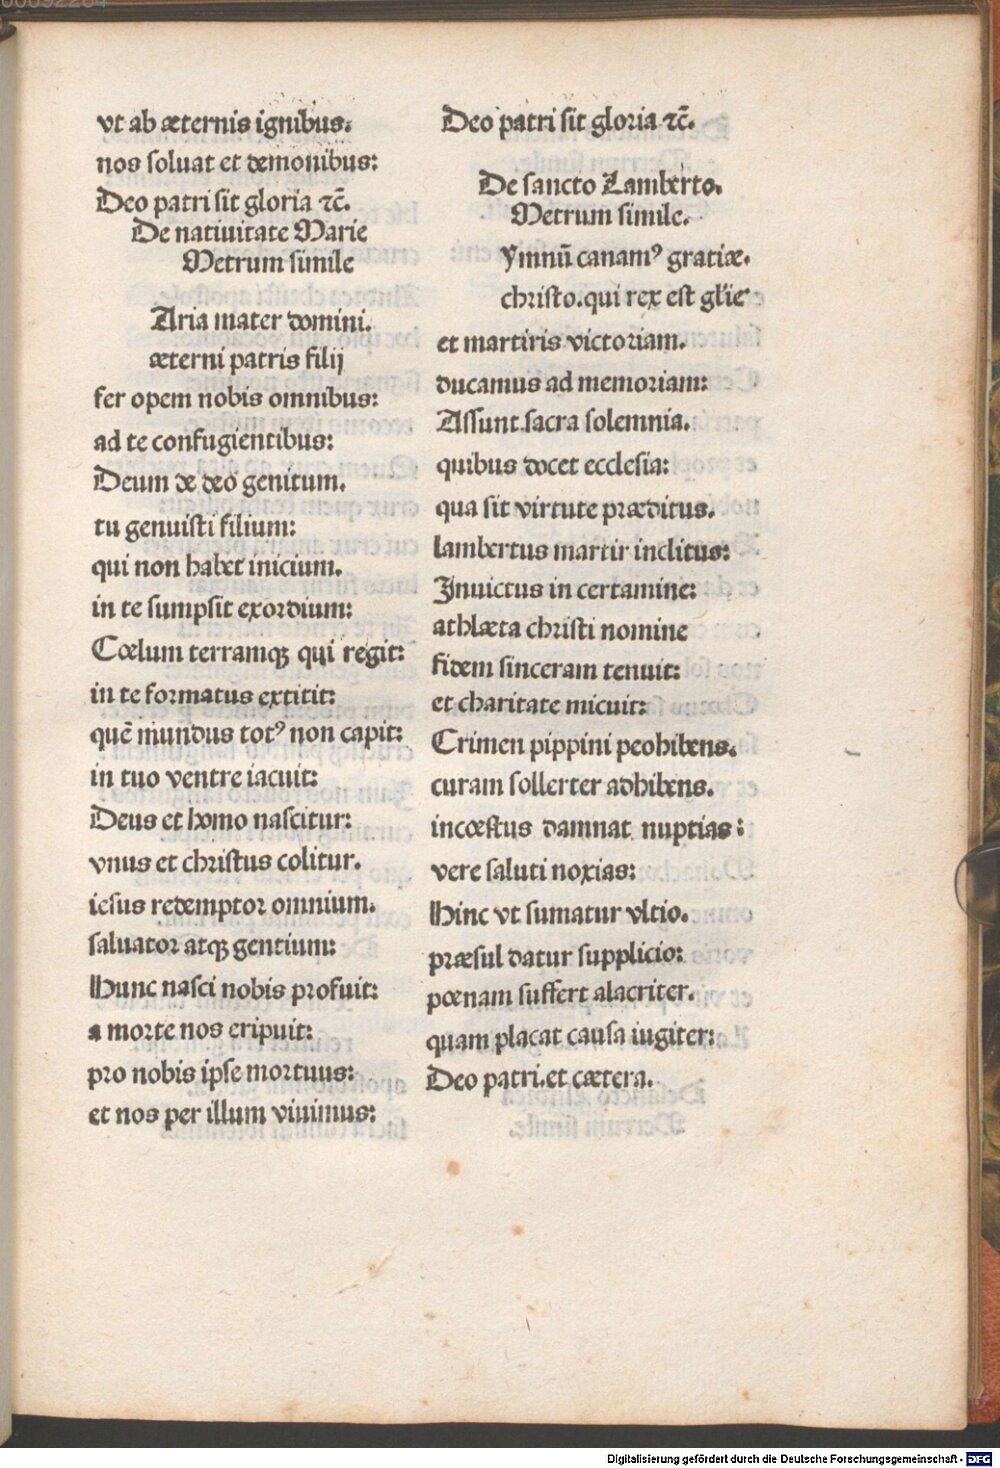 vt ab æternis ignibus.
nos soluat et demonibus:
Deo patri sit gloria ⁊c̄.
De natiuitate Marie
Metrum simile
Aria mater domini.
æterni patris filij
fer opem nobis omnibus:
ad te confugientibus:
Deum de deo genitum.
tu genuisti filium:
qui non habet inicium.
in te sumpsit exordium:
Cœlum terramqꝫ qui regit:
in te formatus extitit:
quē mundus totꝰ non capit:
in tuo ventre iacuit:
Deus et homo nascitur:
vnus et christus colitur.
iesus redemptor omnium.
saluator atqꝫ gentium:
Hunc nasci nobis profuit:
a morte nos eripuit:
pro nobis ipse mortuus:
et nos per illum viuimus:
Deo patri sit gloria ⁊c̄.
De sancto Lamberto.
Metrum simile.
Ymnū canamꝰ gratiæ.
christo.qui rex est gl'ie
et martiris victoriam.
ducamus ad memoriam:
Assunt sacra solemnia.
quibus docet ecclesia:
qua sit virtute præditus.
lambertus martir inclitus:
Inuictus in certamine:
athlæta christi nomine
fidem sinceram tenuit:
et charitate micuit:
Crimen pippini peohibens.
curam sollerter adhibens.
incœstus damnat nuptias:
vere saluti noxias:
Hinc vt sumatur vltio.
præsul datur supplicio:
pœnam suffert alacriter.
quam placat causa iugiter:
Deo patri.et cætera.
Digitalisierung gefördert durch die Deutsche Forschungsgemeinschaft - DFG